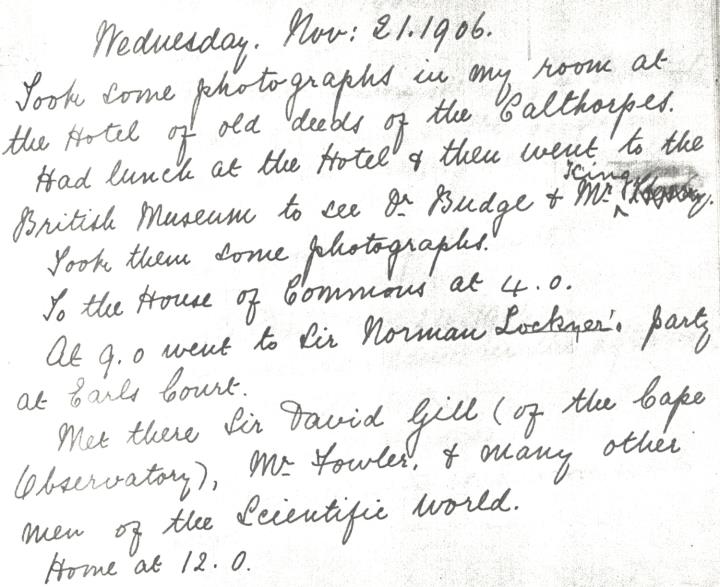 Wednesday. Nov: 21.1906.
Took some photographs in my room at
the Hotel of old deeds of the Calthorpes.
Had lunch at the Hotel & then went to the
British Museum to see Dr Budge & Mr ^King.
Took them some photographs.
To the House of Commons at 4.0.
At 9.0 went to Sir Norman Lockyer's party
at Earls Court.
Met there Sir David Gill (of the Cape
Observatory), Mr Fowler, & many other
men of the Scientific World.
Home at 12.0.